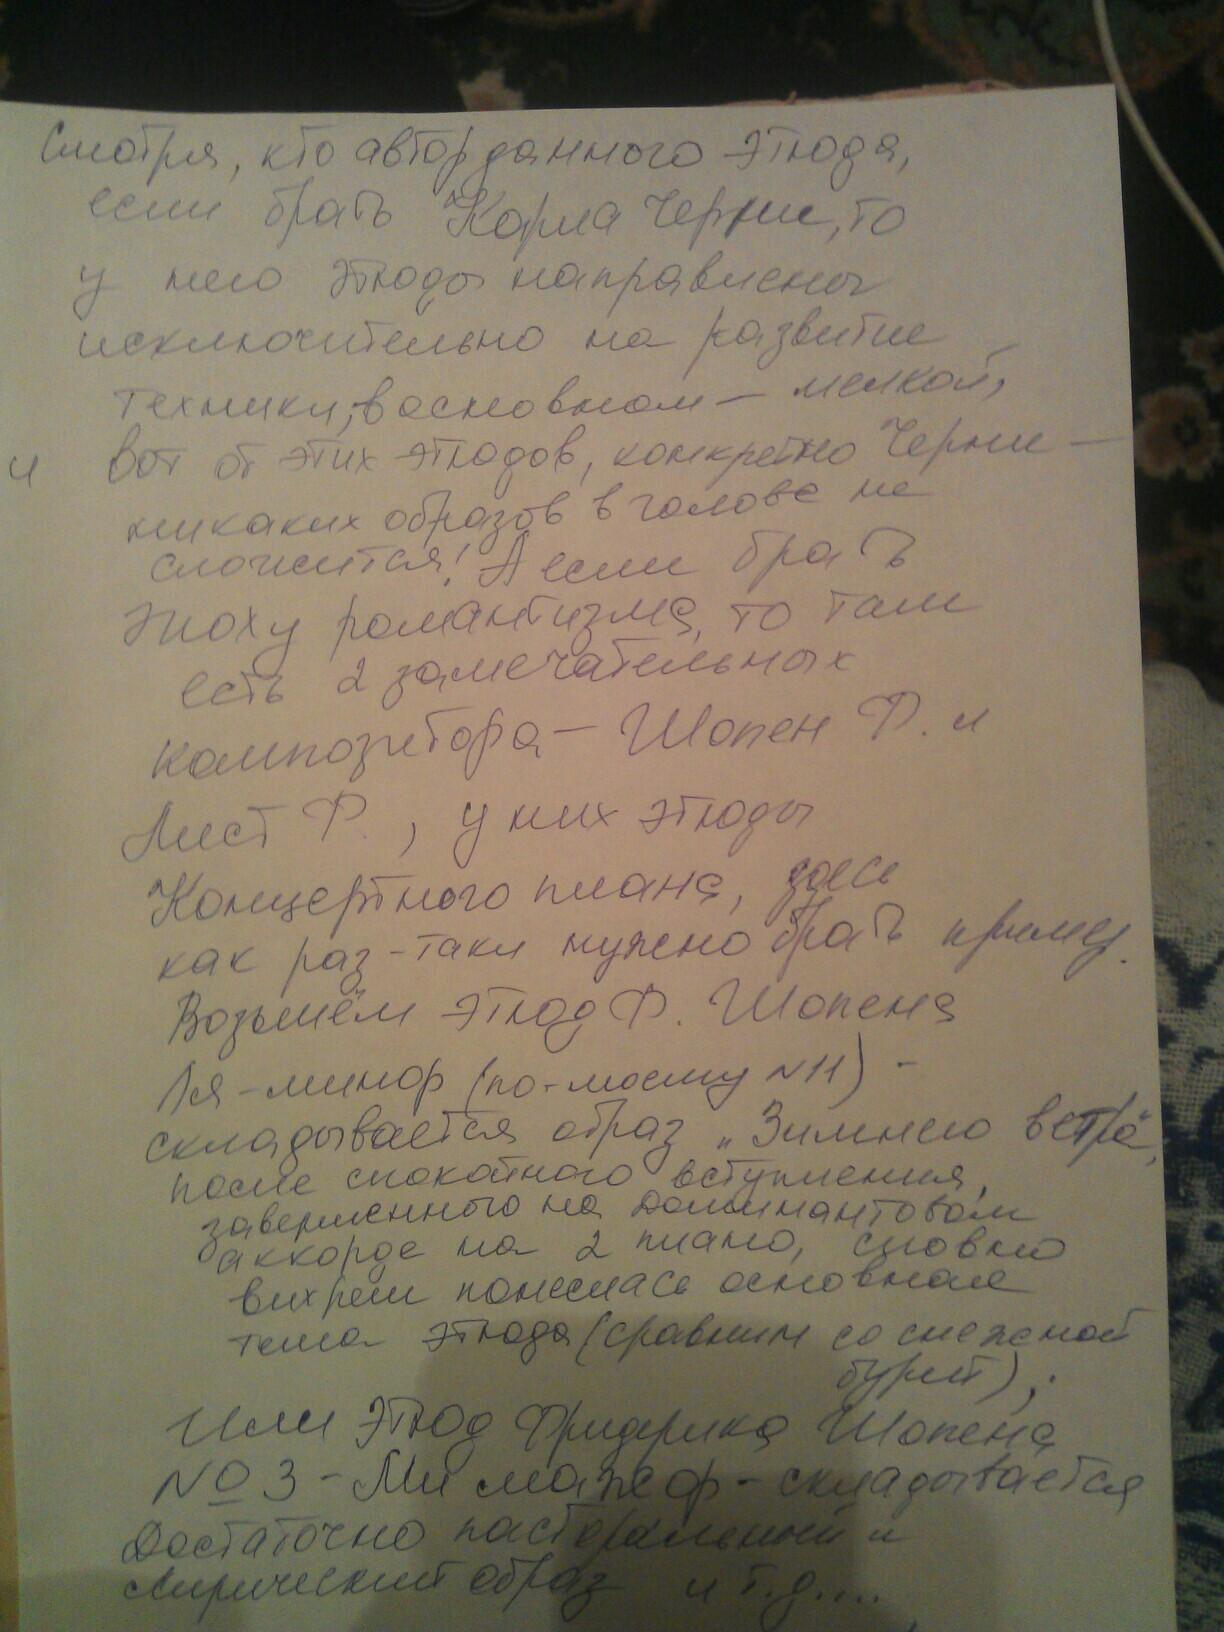 Смотря, кто автор данного этюда,
если брать Карла Черни, то
у него этюды направлены
исключительно на развитие
техники, в основном — мелкой,
и вот от этих этюдов, конкретно Черни —
никаких образов в голове не
сложится! А если брать
Эпоху романтизма, то там
есть 2 замечательных
композитора — Шопен Ф. и
Лист Ф., у них этюды
Концертного плана, здесь
как раз-таки нужно брать пример.
Возьмём этюд Ф. Шопена
Ля-минор (по-моему №11) -
складывается образ „Зимнего ветра",
после спокойного вступления,
завершенного на доминантовом
аккорде на 2 пиано, словно
вихрем понеслась основная
тема этюда (сравним со снежной
бурей);
Или этюд Фридерика Шопена
№ 3 - Ми мажор - складывается
достаточно пасторальный и
лирический образ и т.д....